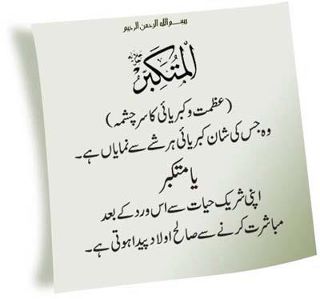 بسم اللہ الرحمن الرحیم
اَلْمُتَكَبِّرُ جل جلالہ
(عظمت و کبریائی کا سرچشمہ)
وہ جس کی شان کبریائی ہر شے سے نمایاں ہے۔
یا متکبر
اپنی شریک حیات سے اس ورد کے بعد
مباشرت کرنے سے صالح اولاد پیدا ہوتی ہے۔